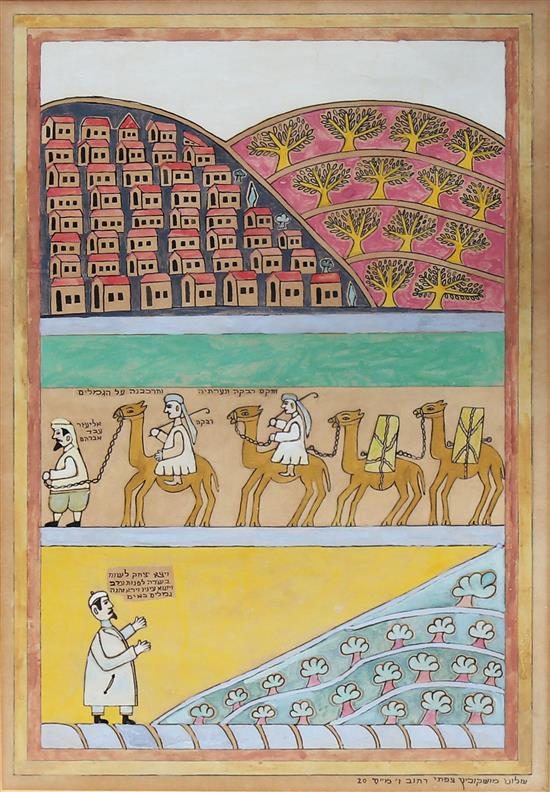 ותקם רבקה ונערתיה ותרכבנה על הגמלים
אליעזר
עבד
אברהם
רבקה
ויצא יצחק לשוח
בשדה לפנות ערב
וישא עיניו וירא והנה
גמלים באים
שלום מושקוביץ צפתי רחוב ו׳ מ״ס 20